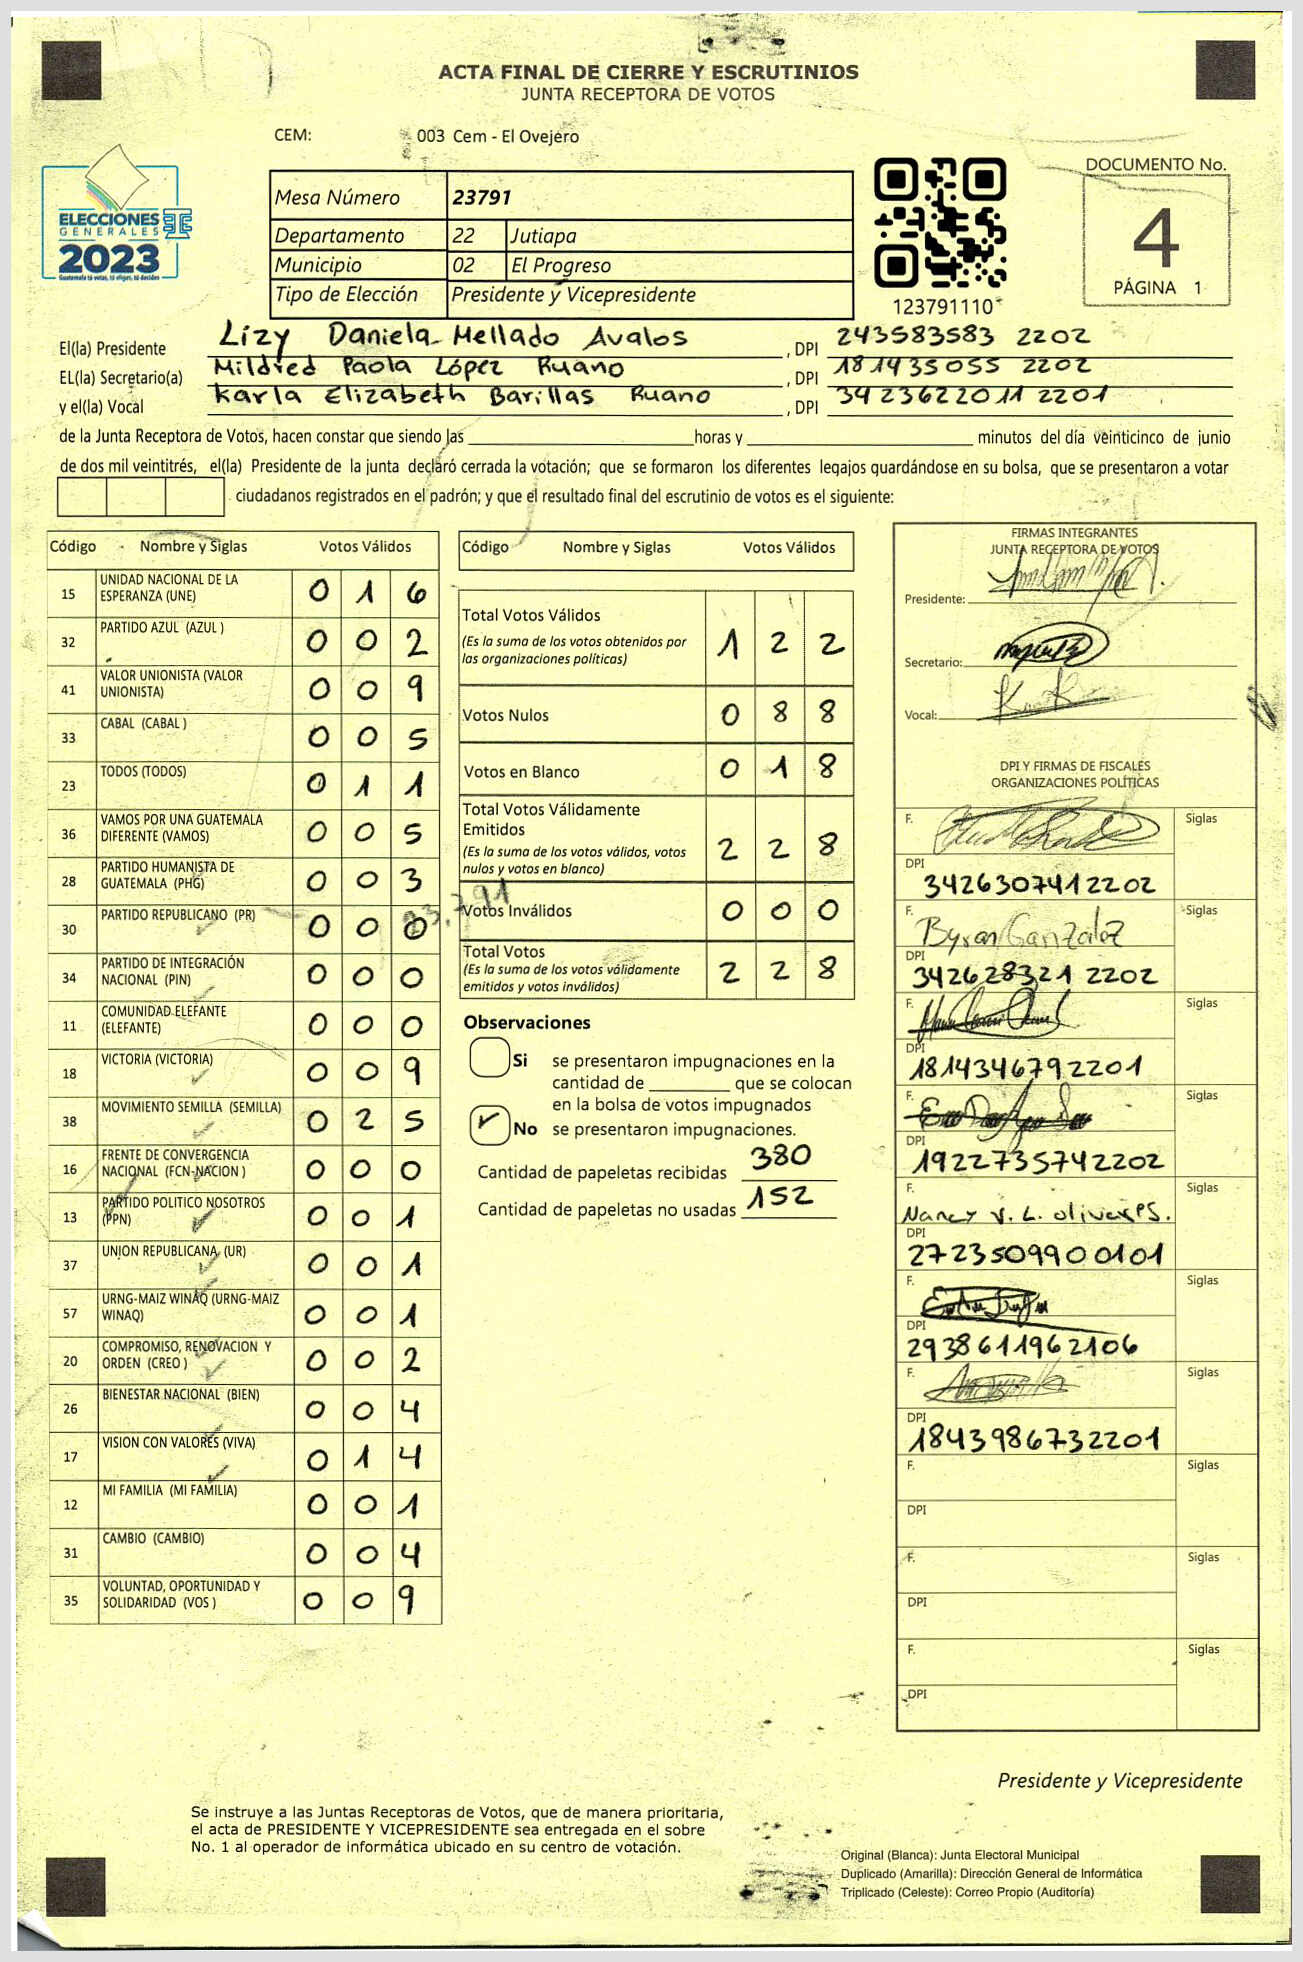 ACTA FINAL DE CIERRE Y ESCRUTINIOS
JUNTA RECEPTORA DE VOTOS
CEM: 003 Cem - El Ovejero
ELECCIONES
GENERALES
2023
Guatemala tú votas, tú eliges, tú decides
Mesa Número 23791
Departamento 22 Jutiapa
Municipio 02 El Progreso
Tipo de Elección Presidente y Vicepresidente
123791110
DOCUMENTO No.
4
PÁGINA 1
El(la) Presidente Lizy Daniela Mellado Avalos , DPI 243583583 2202
EL(la) Secretario(a) Mildred Paola López Ruano , DPI 181435055 2202
y el(la) Vocal Karla Elizabeth Barillas Ruano , DPI 3423622011 2201
de la Junta Receptora de Votos, hacen constar que siendo las horas y minutos del día veinticinco de junio
de dos mil veintitrés, el(la) Presidente de la junta declaró cerrada la votación; que se formaron los diferentes legajos guardándose en su bolsa, que se presentaron a votar
ciudadanos registrados en el padrón; y que el resultado final del escrutinio de votos es el siguiente:
Código Nombre y Siglas Votos Válidos
15 UNIDAD NACIONAL DE LA ESPERANZA (UNE) 0 1 6
32 PARTIDO AZUL (AZUL ) 0 0 2
41 VALOR UNIONISTA (VALOR UNIONISTA) 0 0 9
33 CABAL (CABAL ) 0 0 5
23 TODOS (TODOS) 0 1 1
36 VAMOS POR UNA GUATEMALA DIFERENTE (VAMOS) 0 0 5
28 PARTIDO HUMANISTA DE GUATEMALA (PHG) 0 0 3
30 PARTIDO REPUBLICANO (PR) 0 0 0
34 PARTIDO DE INTEGRACIÓN NACIONAL (PIN) 0 0 0
11 COMUNIDAD ELEFANTE (ELEFANTE) 0 0 0
18 VICTORIA (VICTORIA) 0 0 9
38 MOVIMIENTO SEMILLA (SEMILLA) 0 2 5
16 FRENTE DE CONVERGENCIA NACIONAL (FCN-NACION ) 0 0 0
13 PARTIDO POLITICO NOSOTROS (PPN) 0 0 1
37 UNION REPUBLICANA (UR) 0 0 1
57 URNG-MAIZ WINAQ (URNG-MAIZ WINAQ) 0 0 1
20 COMPROMISO, RENOVACION Y ORDEN (CREO ) 0 0 2
26 BIENESTAR NACIONAL (BIEN) 0 0 4
17 VISION CON VALORES (VIVA) 0 1 4
12 MI FAMILIA (MI FAMILIA) 0 0 1
31 CAMBIO (CAMBIO) 0 0 4
35 VOLUNTAD, OPORTUNIDAD Y SOLIDARIDAD (VOS ) 0 0 9
23,791
Código Nombre y Siglas Votos Válidos
Total Votos Válidos 1 2 2
(Es la suma de los votos obtenidos por
las organizaciones políticas)
Votos Nulos 0 8 8
Votos en Blanco 0 1 8
Total Votos Válidamente
Emitidos 2 2 8
(Es la suma de los votos válidos, votos
nulos y votos en blanco)
Votos Inválidos 0 0 0
Total Votos 2 2 8
(Es la suma de los votos válidamente
emitidos y votos inválidos)
Observaciones
Si se presentaron impugnaciones en la
cantidad de que se colocan
en la bolsa de votos impugnados
No se presentaron impugnaciones.
Cantidad de papeletas recibidas 380
Cantidad de papeletas no usadas 152
FIRMAS INTEGRANTES
JUNTA RECEPTORA DE VOTOS
Presidente:
Secretario:
Vocal:
DPI Y FIRMAS DE FISCALES
ORGANIZACIONES POLÍTICAS
F. Siglas
DPI
3426307412202
F. Byron Gonzalez Siglas
DPI
342628321 2202
F. Siglas
DPI
1814346792201
F. Siglas
DPI
1922735742202
F. Siglas
Nancy V. L. olivares.
DPI
2723509900101
F. Siglas
DPI
2938611962106
F. Siglas
DPI
1843986732201
F. Siglas
DPI
F. Siglas
DPI
F. Siglas
DPI
Presidente y Vicepresidente
Se instruye a las Juntas Receptoras de Votos, que de manera prioritaria,
el acta de PRESIDENTE Y VICEPRESIDENTE sea entregada en el sobre
No. 1 al operador de informática ubicado en su centro de votación.
Original (Blanca): Junta Electoral Municipal
Duplicado (Amarilla): Dirección General de Informática
Triplicado (Celeste): Correo Propio (Auditoría)